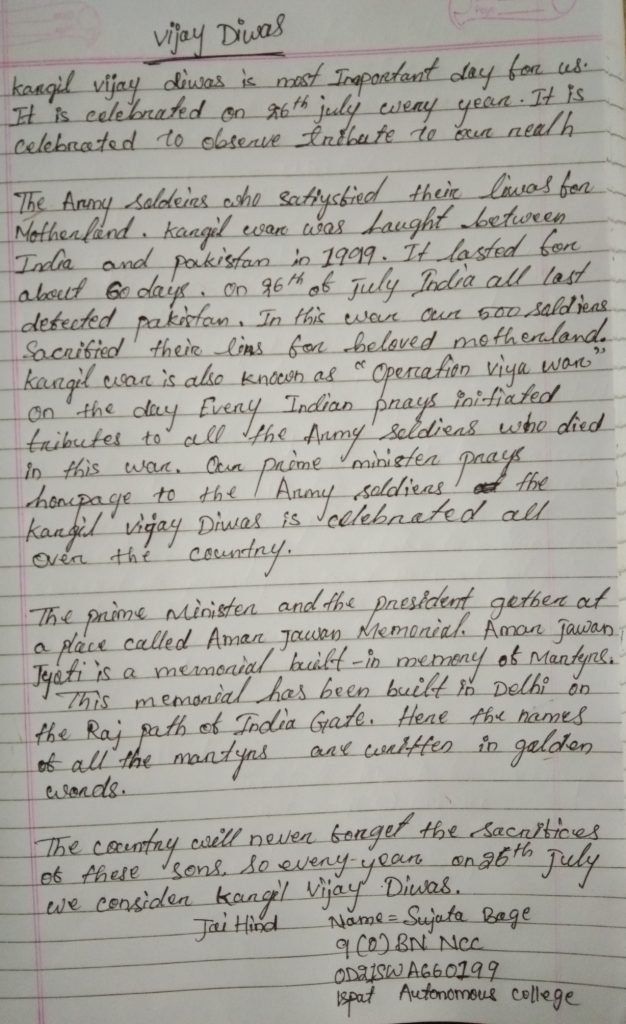 Vijay Diwas
Kangil vijay diwas is most Important day for us.
It is celebrated on 26th july every year. It is
celebrated to observe tribute to our nealh
The Army soldeirs who satiysfied their liwas for
Motherland. Kangil war was faught between
India and pakistan in 1999. It lasted for
about 60 days. on 26th of July India all last
defected pakistan. In this war our 500 soldiers
Sacrified their lins for beloved motherland.
Kangil war is also known as "Operation viya war"
on the day Every Indian prays initiated
tributes to all the Army soldiers who died
in this war. Our prime minister prays
hompage to the Army soldiers the
Kangil vijay Diwas is celebrated all
over the country.
The prime Minister and the president gather at
a place called Amar Jawan Memorial. Amar Jawan
Jyoti is a memorial built-in memory of Martyrs.
This memorial has been built in Delhi on
the Raj path of India Gate. Here the names
of all the martyrs are written in golden
words.
The country will never forget the sacrifices
of these sons. So every-year on 26th July
we consider Kangil Vijay Diwas.
Jai Hind Name = Sujata Bage
9 (O) BN NCC
OD21SWA660199
Ispat Autonomous college